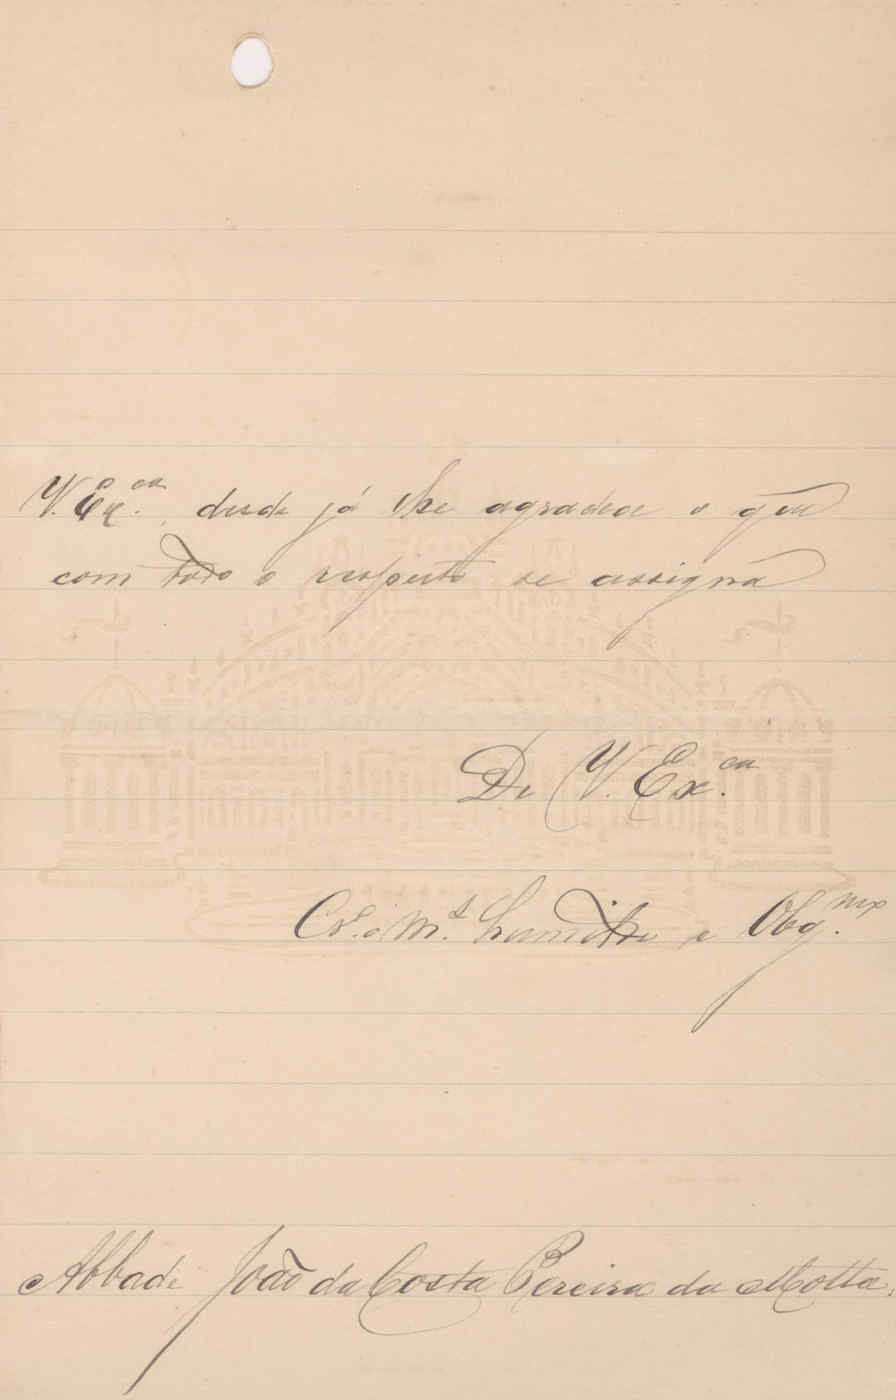 V. Ex.ᶜⁱᵃ, desde já lhe agradece o que
com todo o respeito se assigna
De V. Ex.ᶜⁱᵃ
Cr.º M.ᵗ humilde e Obg.ᵐº
Abbade João da Costa Pereira da Motta.